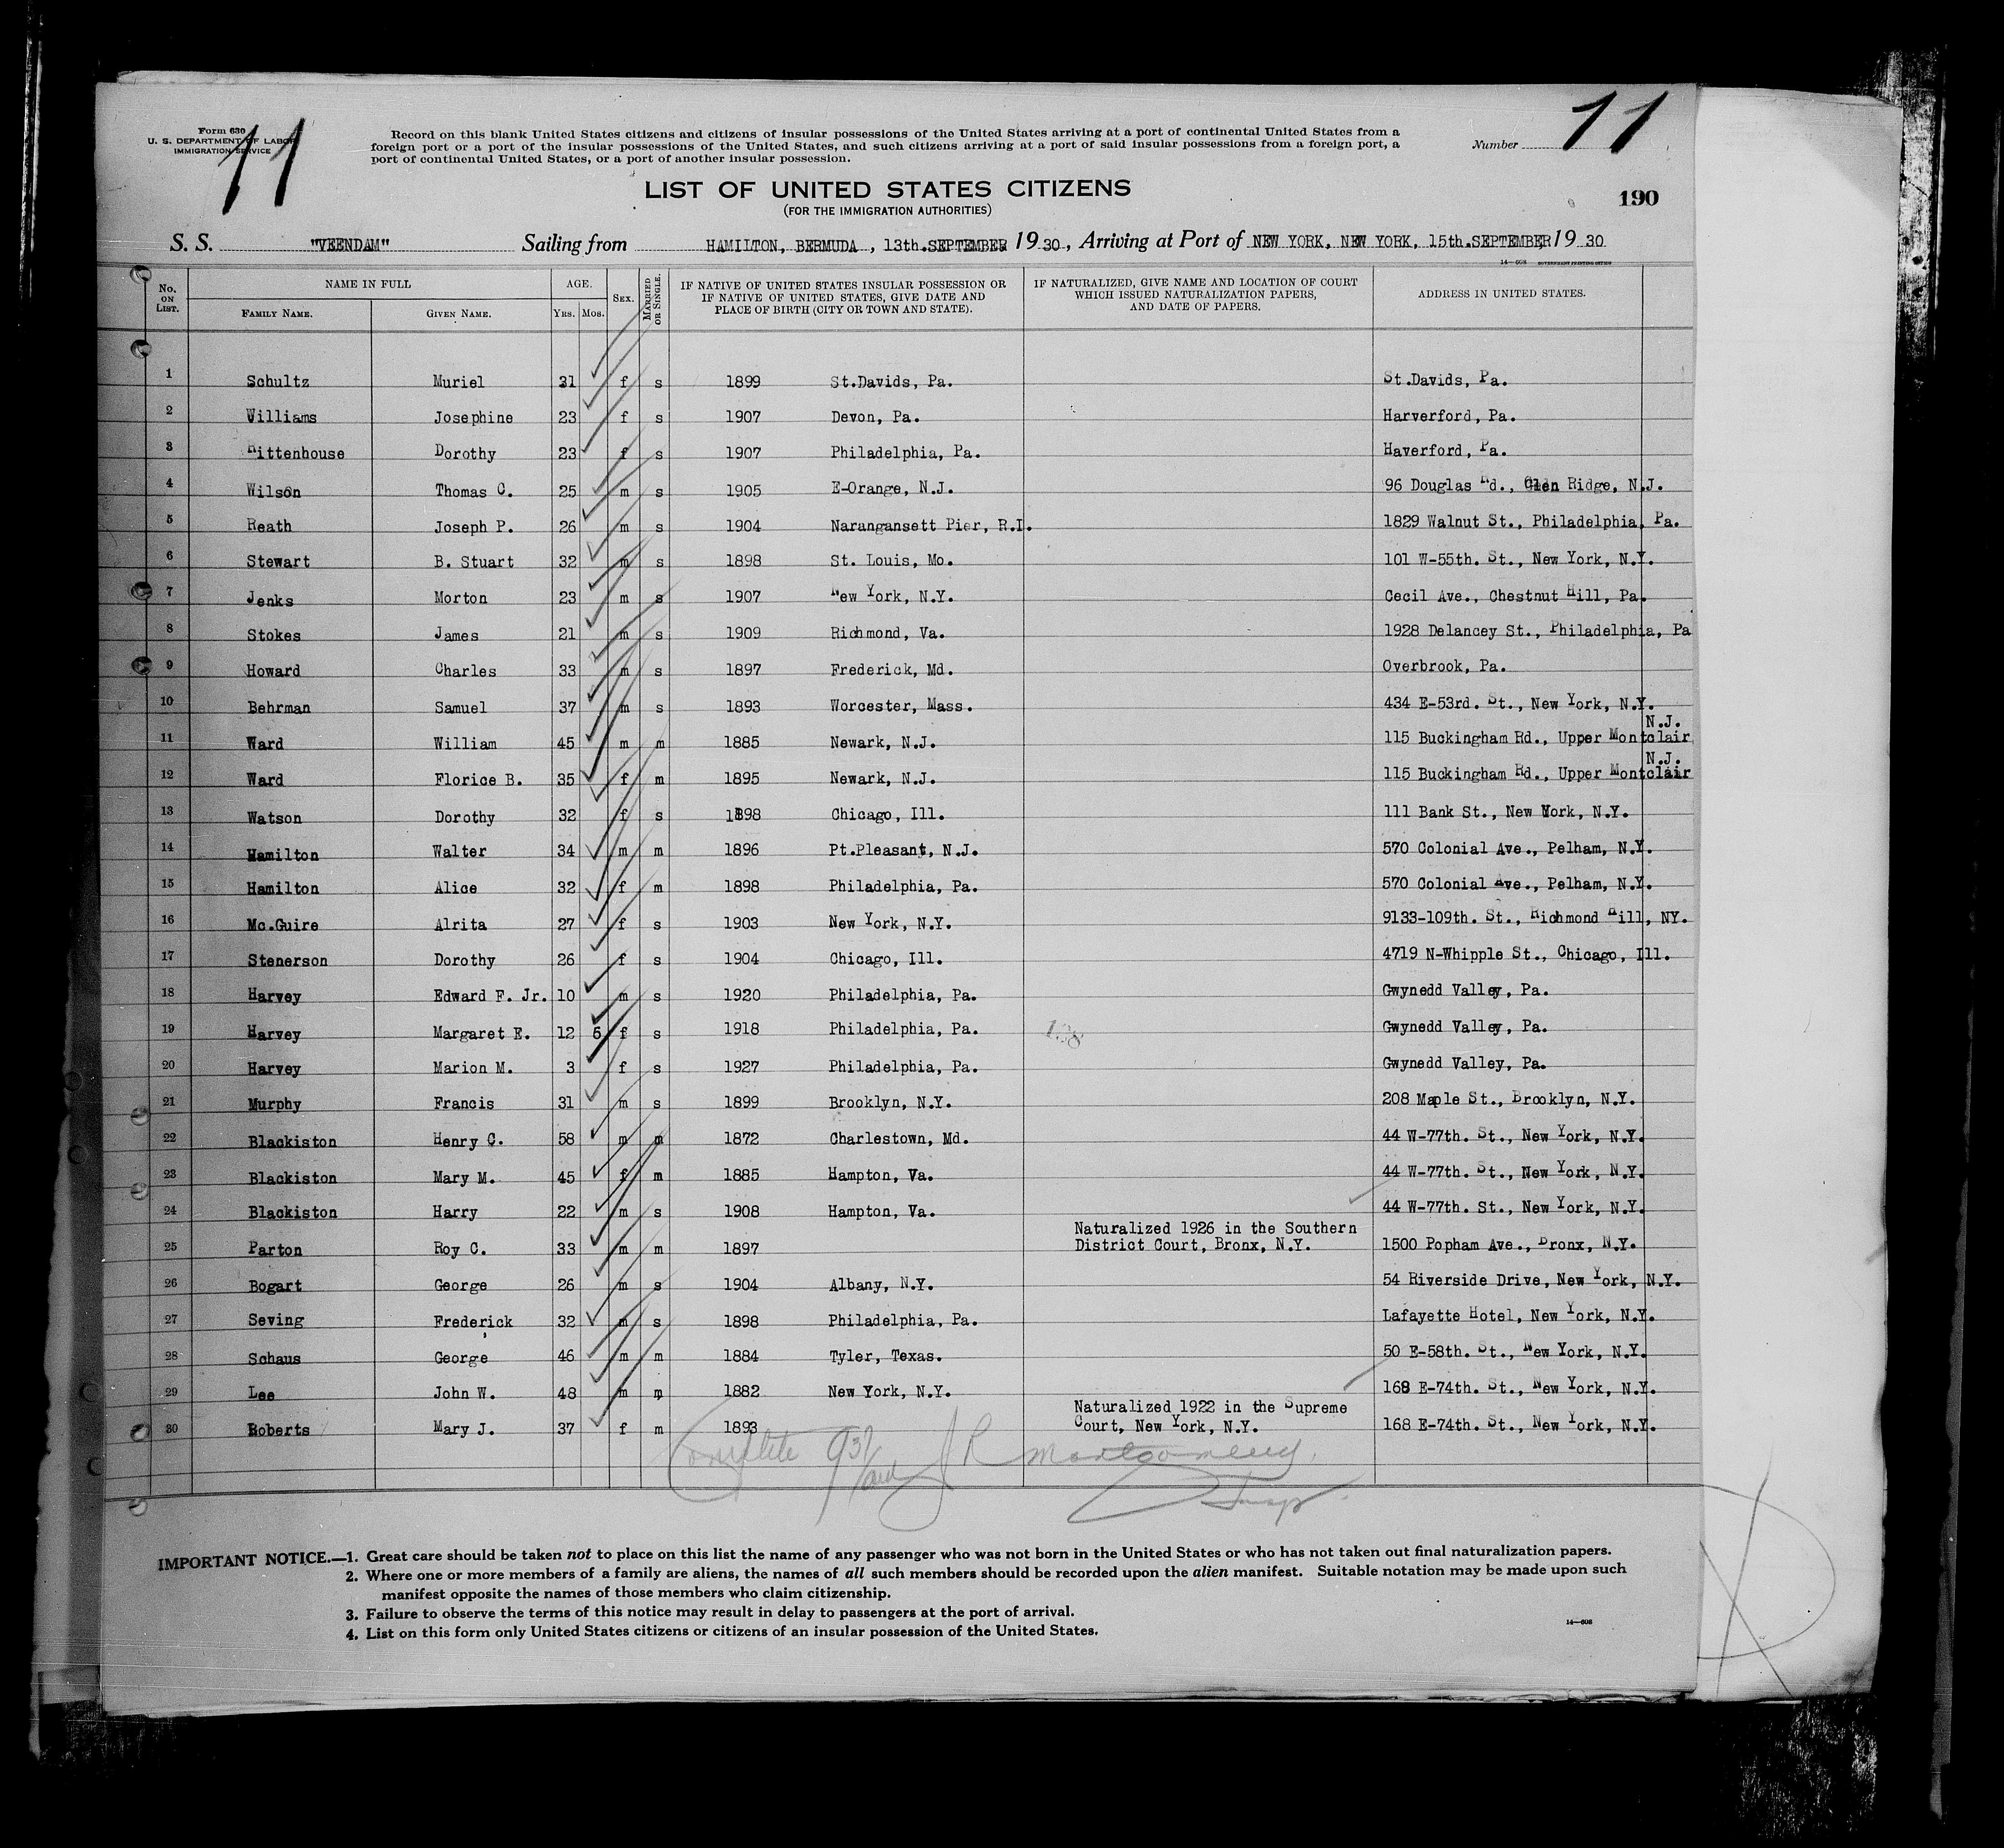 Form 630
U. S. DEPARTMENT OF LABOR
IMMIGRATION SERVICE
11
Record on this blank United States citizens and citizens of insular possessions of the United States arriving at a port of continental United States from a
foreign port or a port of the insular possessions of the United States, and such citizens arriving at a port of said insular possessions from a foreign port, a
port of continental United States, or a port of another insular possession.
Number 11
LIST OF UNITED STATES CITIZENS
(FOR THE IMMIGRATION AUTHORITIES)
190
S. S. "VEENDAM" Sailing from HAMILTON, BERMUDA, 13th.SEPTEMBER 1930, Arriving at Port of NEW YORK, NEW YORK, 15th.SEPTEMBER, 1930
14—608 GOVERNMENT PRINTING OFFICE
No. ON LIST. NAME IN FULL FAMILY NAME. GIVEN NAME. AGE. YRS. MOS. SEX. MARRIED OR SINGLE. IF NATIVE OF UNITED STATES INSULAR POSSESSION OR IF NATIVE OF UNITED STATES, GIVE DATE AND PLACE OF BIRTH (CITY OR TOWN AND STATE). IF NATURALIZED, GIVE NAME AND LOCATION OF COURT WHICH ISSUED NATURALIZATION PAPERS, AND DATE OF PAPERS. ADDRESS IN UNITED STATES.
1 Schultz Muriel 31 f s 1899 St.Davids, Pa. St.Davids, Pa.
2 Williams Josephine 23 f s 1907 Devon, Pa. Harverford, Pa.
3 Rittenhouse Dorothy 23 f s 1907 Philadelphia, Pa. Haverford, Pa.
4 Wilson Thomas C. 25 m s 1905 E-Orange, N.J. 96 Douglas Rd., Glen Ridge, N.J.
5 Reath Joseph P. 26 m s 1904 Narangansett Pier, R.I. 1829 Walnut St., Philadelphia, Pa.
6 Stewart B. Stuart 32 m s 1898 St. Louis, Mo. 101 W-55th. St., New York, N.Y.
7 Jenks Morton 23 m s 1907 New York, N.Y. Cecil Ave., Chestnut Hill, Pa.
8 Stokes James 21 m s 1909 Richmond, Va. 1928 Delancey St., Philadelphia, Pa
9 Howard Charles 33 m s 1897 Frederick, Md. Overbrook, Pa.
10 Behrman Samuel 37 m s 1893 Worcester, Mass. 434 E-53rd. St., New York, N.Y.
11 Ward William 45 m m 1885 Newark, N.J. 115 Buckingham Rd., Upper Montclair N.J.
12 Ward Florice B. 35 f m 1895 Newark, N.J. 115 Buckingham Rd., Upper Montclair N.J.
13 Watson Dorothy 32 f s 1898 Chicago, Ill. 111 Bank St., New York, N.Y.
14 Hamilton Walter 34 m m 1896 Pt.Pleasant, N.J. 570 Colonial Ave., Pelham, N.Y.
15 Hamilton Alice 32 f m 1898 Philadelphia, Pa. 570 Colonial Ave., Pelham, N.Y.
16 Mc.Guire Alrita 27 f s 1903 New York, N.Y. 9133-109th. St., Richmond Hill, NY.
17 Stenerson Dorothy 26 f s 1904 Chicago, Ill. 4719 N-Whipple St., Chicago, Ill.
18 Harvey Edward F. Jr. 10 m s 1920 Philadelphia, Pa. Gwynedd Valley, Pa.
19 Harvey Margaret E. 12 5 f s 1918 Philadelphia, Pa. Gwynedd Valley, Pa.
20 Harvey Marion M. 3 f s 1927 Philadelphia, Pa. Gwynedd Valley, Pa.
21 Murphy Francis 31 m s 1899 Brooklyn, N.Y. 208 Maple St., Brooklyn, N.Y.
22 Blackiston Henry C. 58 m m 1872 Charlestown, Md. 44 W-77th. St., New York, N.Y.
23 Blackiston Mary M. 45 f m 1885 Hampton, Va. 44 W-77th. St., New York, N.Y.
24 Blackiston Harry 22 m s 1908 Hampton, Va. 44 W-77th. St., New York, N.Y.
25 Parton Roy C. 33 m m 1897 Naturalized 1926 in the Southern District Court, Bronx, N.Y. 1500 Popham Ave., Bronx, N.Y.
26 Bogart George 26 m s 1904 Albany, N.Y. 54 Riverside Drive, New York, N.Y.
27 Seving Frederick 32 m s 1898 Philadelphia, Pa. Lafayette Hotel, New York, N.Y.
28 Schaus George 46 m m 1884 Tyler, Texas. 50 E-58th. St., New York, N.Y.
29 Lee John W. 48 m m 1882 New York, N.Y. 168 E-74th. St., New York, N.Y.
30 Roberts Mary J. 37 f m 1893 Naturalized 1922 in the Supreme Court, New York, N.Y. 168 E-74th. St., New York, N.Y.
Complete J R Montgomery
Insp.
IMPORTANT NOTICE.—1. Great care should be taken not to place on this list the name of any passenger who was not born in the United States or who has not taken out final naturalization papers.
2. Where one or more members of a family are aliens, the names of all such members should be recorded upon the alien manifest. Suitable notation may be made upon such
manifest opposite the names of those members who claim citizenship.
3. Failure to observe the terms of this notice may result in delay to passengers at the port of arrival.
4. List on this form only United States citizens or citizens of an insular possession of the United States.
14—608